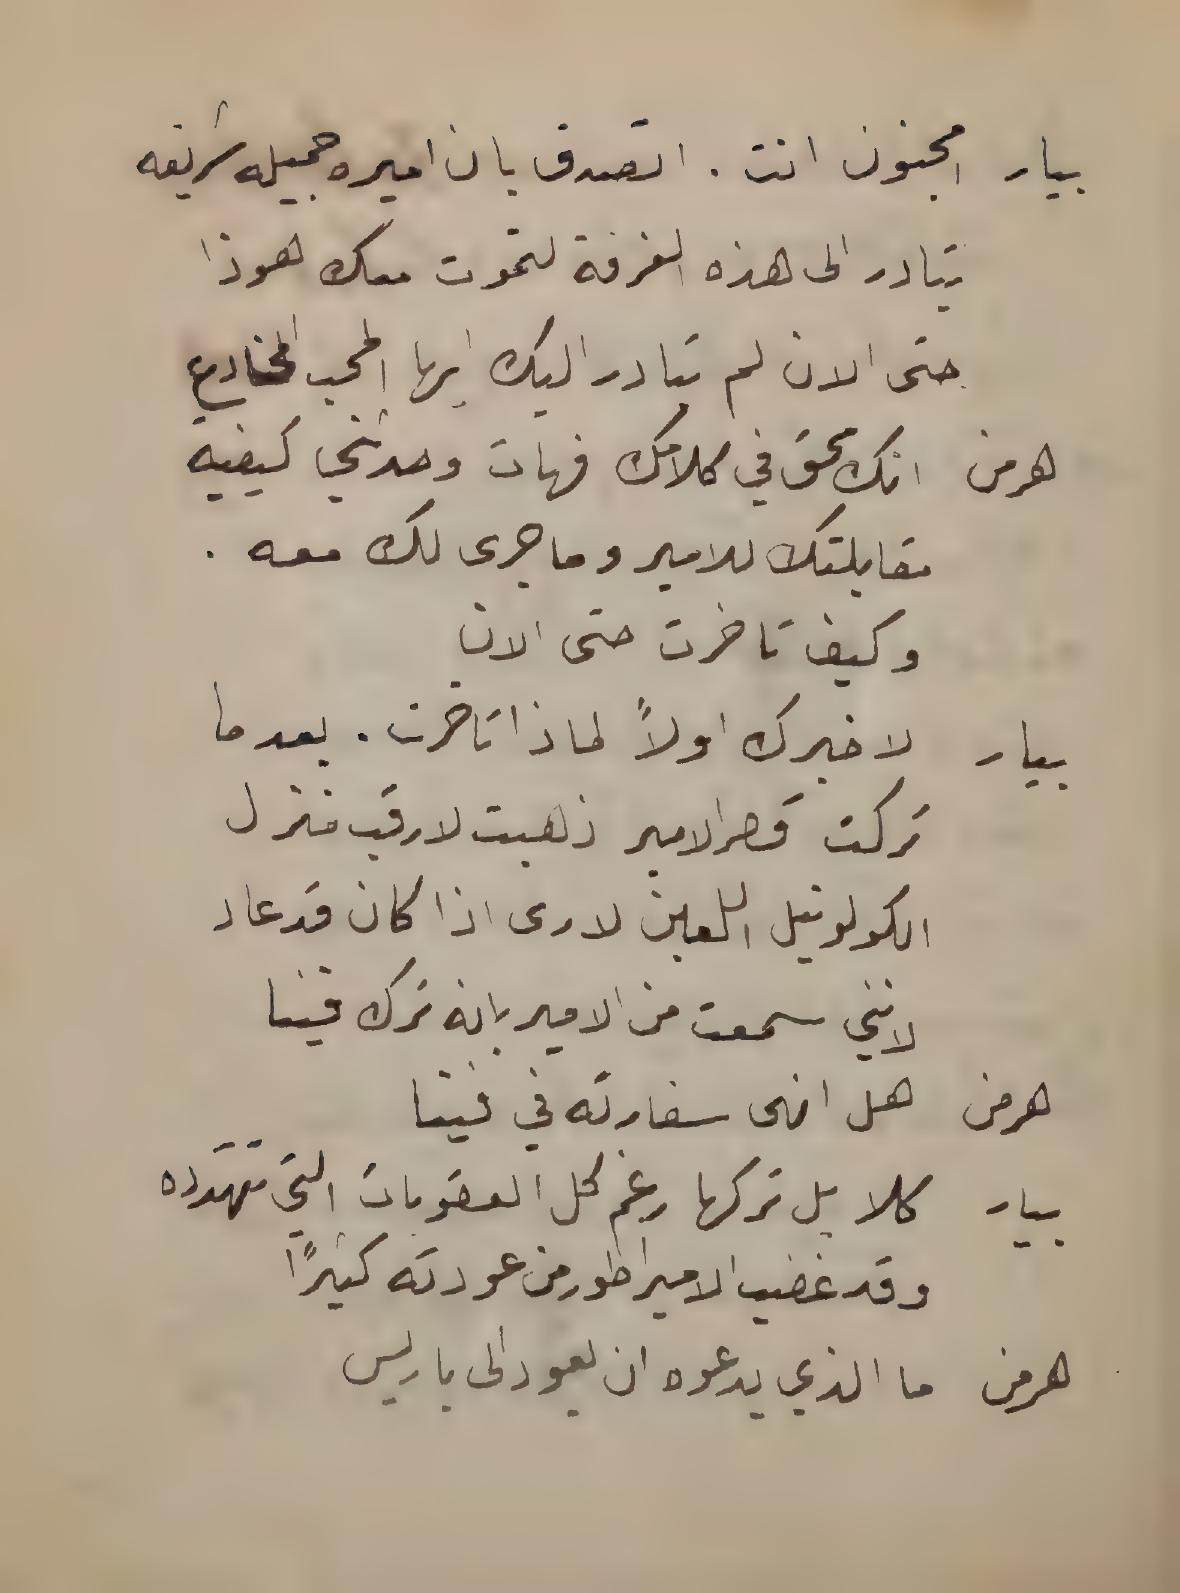 بيار امجنون انت . اتصدق بان اميره جميله شريفه
تبادر الى هذه الغرفة لتموت معك هوذا
حتى الان لم تبادر اليك ايها المحب المخادع
هرمن انك محق في كلامك فهات وحدثني كيفية
مقابلتك للامير وما جرى لك معه .
وكيف تاخرت حتى الان
بيار لاخبرك اولاً لماذا تاخرت . بعد ما
تركت قصر الامير ذهبت لارقب منزل
الكولونيل اللعين لارى اذا كان قد عاد
لانني سمعت من الامير بانه ترك فينا
هرمن هل انهى سفارته في فينا
بيار كلا بل تركها رغم كل العقوبات التي تتهدده
وقد غضب الامبراطور من عودته كثيرًا
هرمن ما الذي يدعوه ان يعود الى باريس